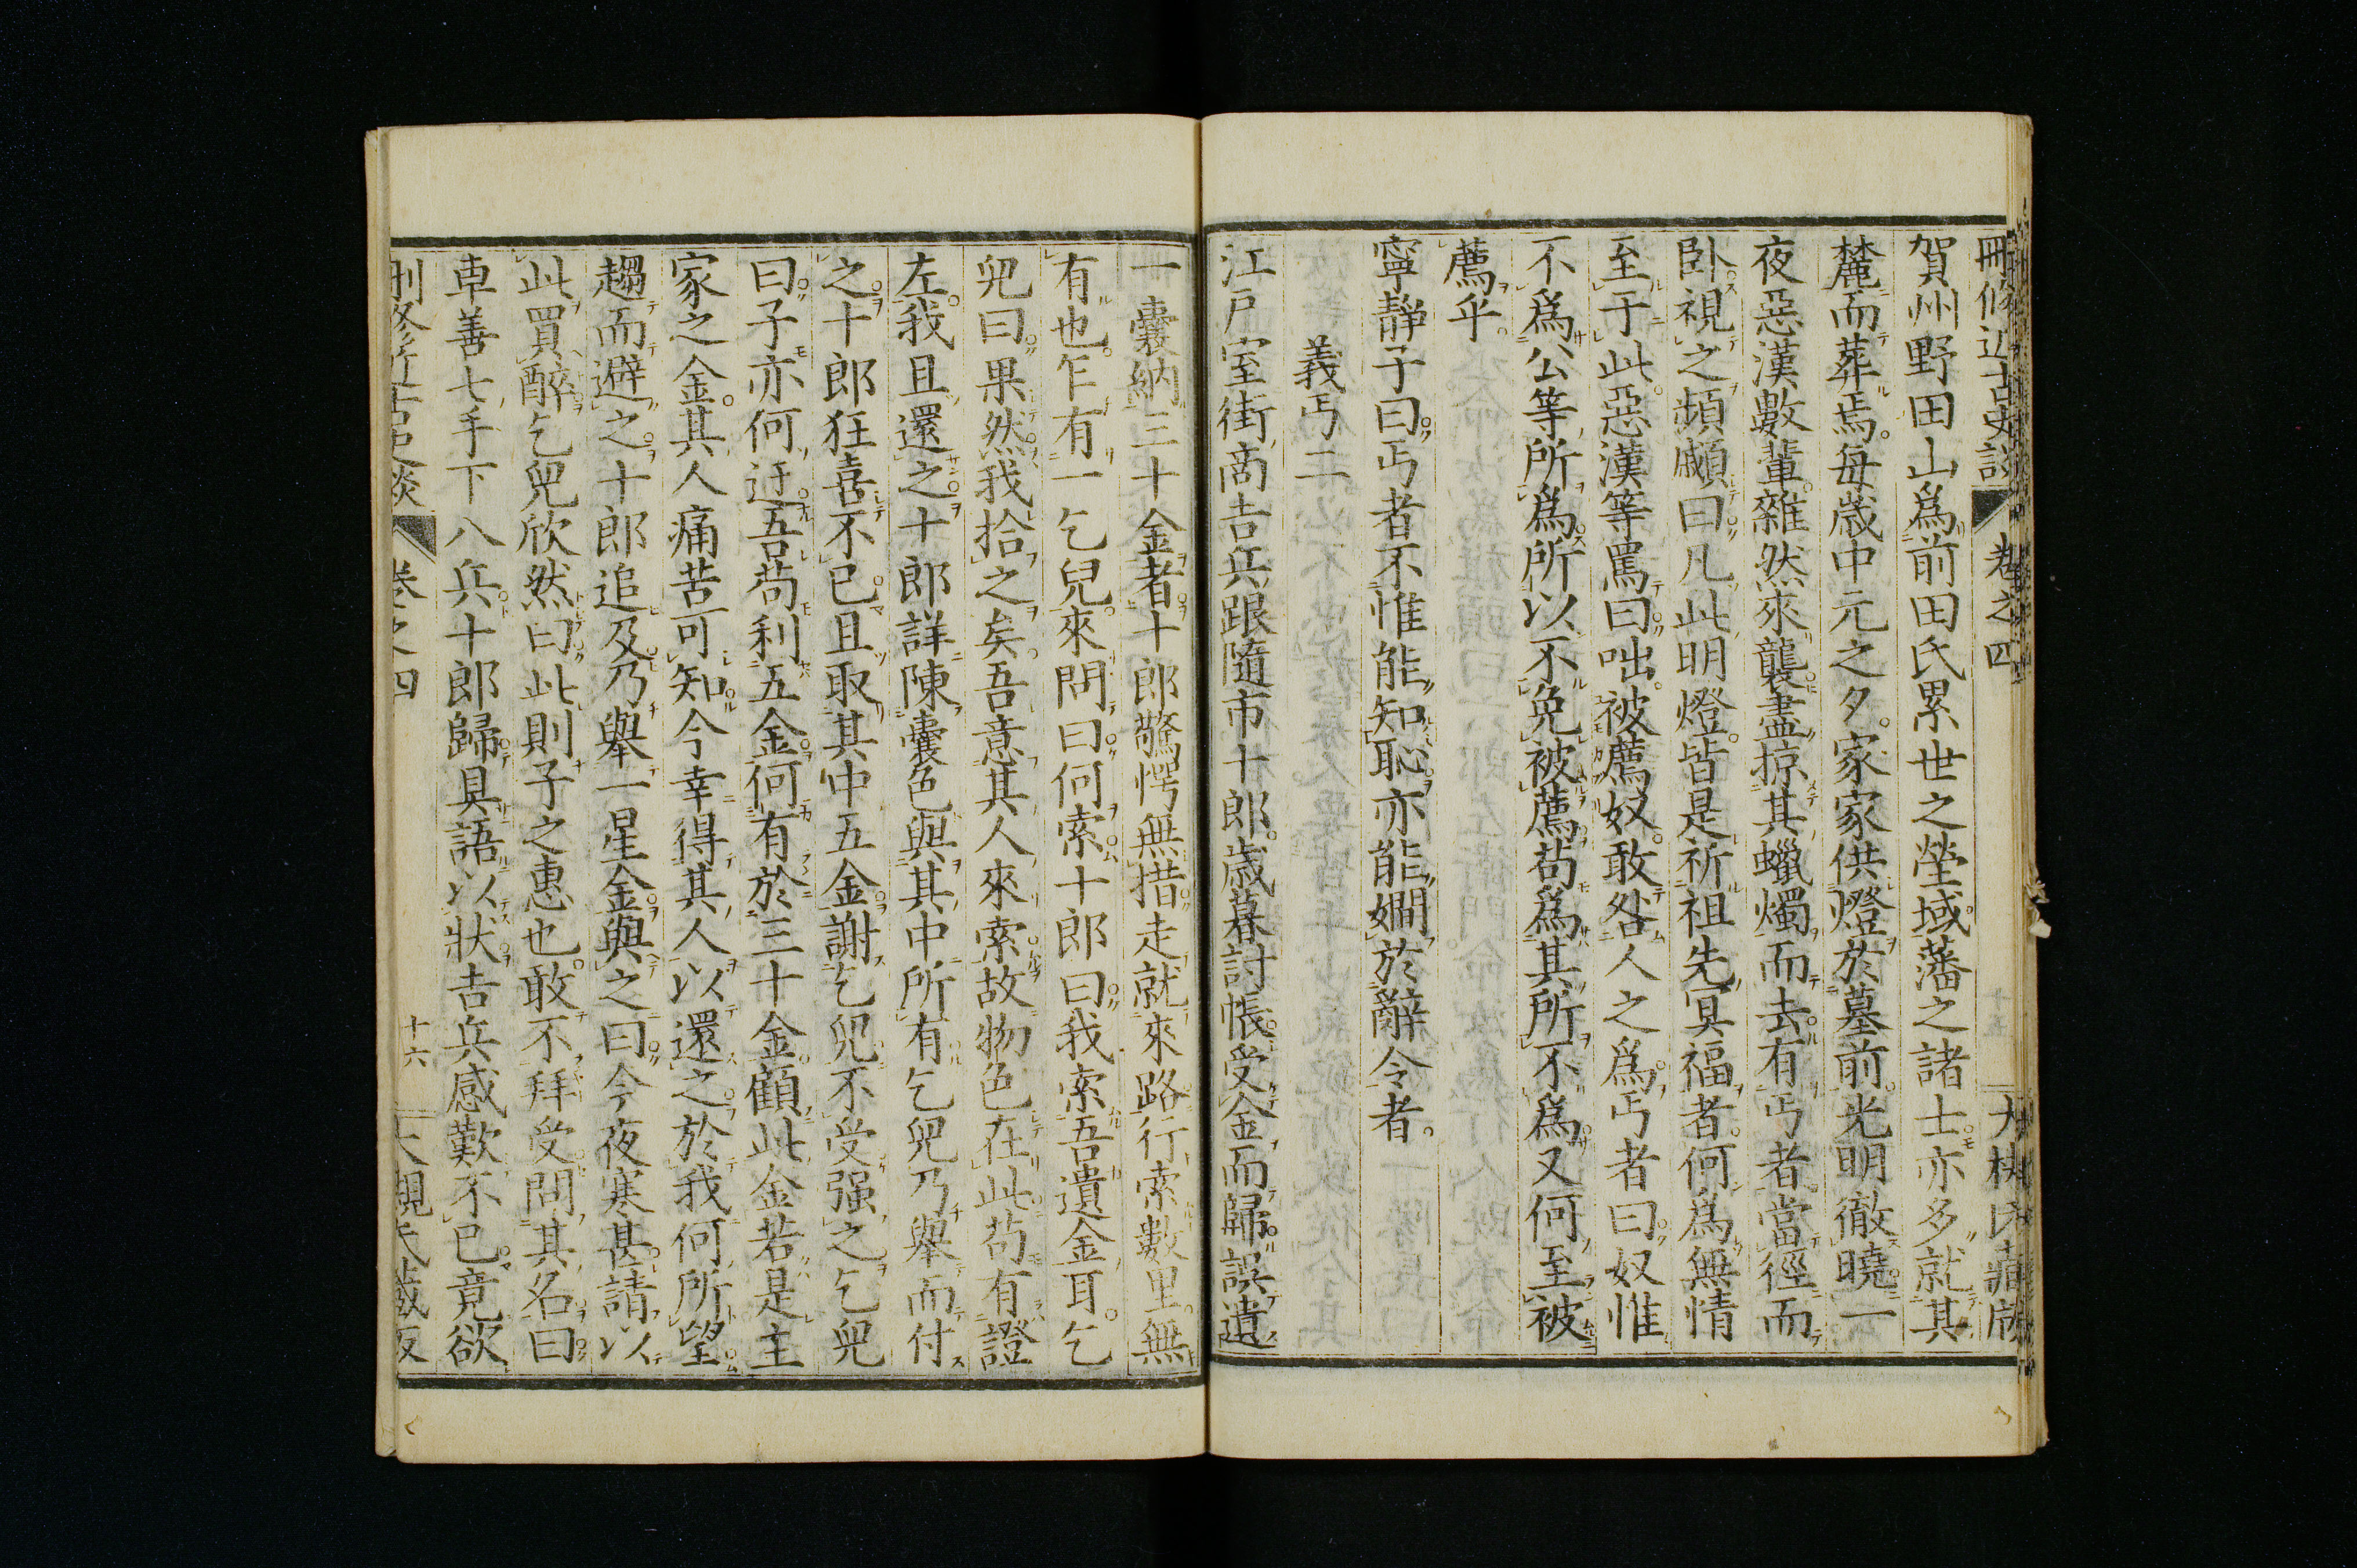 刪修近古史談 卷之四 大槻氏藏版
賀州野田山爲前田氏累世之塋域藩之諸士亦多就其
麓而葬焉。每歲中元之夕。家家供燈於墓前。光明徹曉一
夜惡漢數輩。雜然來襲盡掠其蠟燭而去有丐者。當徑而
臥視之頻顣曰凡此明燈。皆是祈祖先冥福者。何爲無情
至于此。惡漢等罵曰咄。被薦奴。敢咎人之爲。丐者曰奴惟
不爲公等所爲所以不免被薦苟爲其所不爲又何至被
薦乎。
寧靜子曰丐者不惟能知恥。亦能嫺於辭令者。
義丐二
江戶室街商吉兵跟隨市十郎。歲暮討帳。受金而歸。誤遺
一囊納三十金者。十郎驚愕無措走就來路行索數里。無
有也。乍有一乞兒。來問曰何索十郎曰我索吾遺金耳。乞
兒曰果然我拾之矣。吾意其人來索故物色在此苟有證
左。我且還之。十郎詳陳囊色與其中所有乞兒乃舉而付
之。十郎狂喜不已。且取其中五金謝乞兒不受强之乞兒
曰子亦何迂吾苟利五金何有於三十金顧此金若是主
家之金。其人痛苦可知今幸得其人以還之。於我何所望
趨而避之。十郎追及乃舉一星金與之曰今夜寒甚。請以
此買醉乞兒欣然曰此則子之惠也。敢不拜受問其名曰
車善七手下八兵十郎歸具語以狀吉兵感歎不已竟欲
刪修近古史談 卷之四 十六 大槻氏藏版